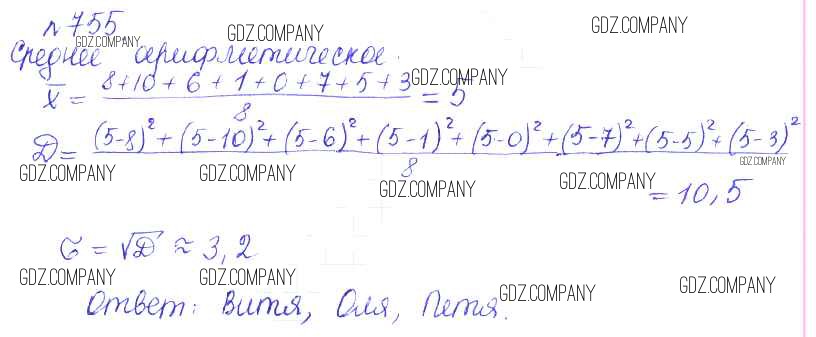 № 755.
GDZ.COMPANY GDZ.COMPANY GDZ.COMPANY
Среднее арифметическое.
x̄ = (8+10+6+1+0+7+5+3)/8 = 5
GDZ.COMPANY
D = ((5-8)²+(5-10)²+(5-6)²+(5-1)²+(5-0)²+(5-7)²+(5-5)²+(5-3)²)/8
GDZ.COMPANY
GDZ.COMPANY GDZ.COMPANY GDZ.COMPANY GDZ.COMPANY
= 10,5
σ = √D ≈ 3,2
GDZ.COMPANY GDZ.COMPANY GDZ.COMPANY GDZ.COMPANY
Ответ: Витя, Оля, Петя.